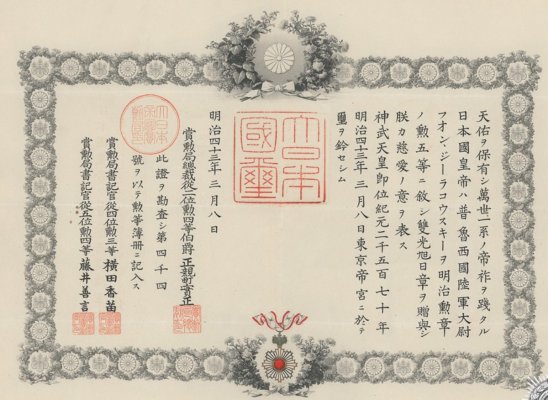 天佑ヲ保有シ萬世一系ノ帝祚ヲ踐タル
日本國皇帝ハ普魯西國陸軍大尉
フオン、ジーラコウスキーヲ明治勲章
ノ勲五等ニ敘シ雙光旭日章ヲ贈與シ
朕カ慈愛ノ意ヲ表ス
神武天皇即位紀元二千五百七十年
明治四十三年三月八日東京帝宮ニ於テ
璽ヲ鈐セシム
大日本
國璽
明治四十三年三月八日
賞勲局總裁從二位勲四等伯爵正親町實正
此證ヲ勘査シ第四千四
號ヲ以テ勲等簿册ニ記入ス
賞勲局書記官從四位勲三等横田香苗
賞勲局書記官從五位勲四等藤井善言